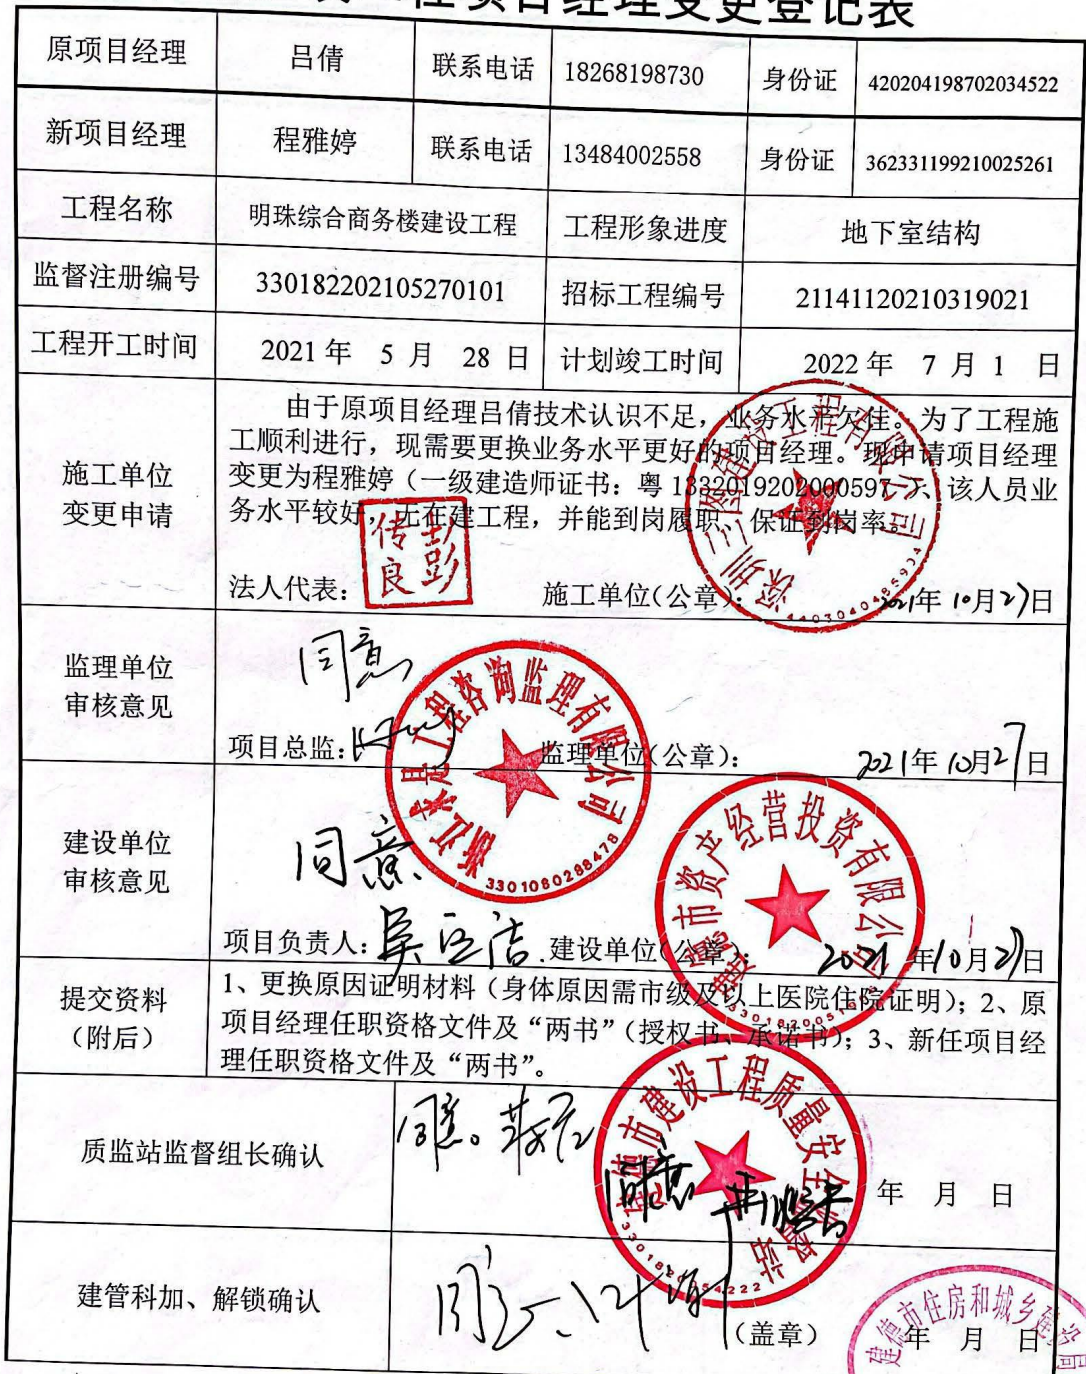 工程项目经理变更登记表
原项目经理 吕倩 联系电话 18268198730 身份证 420204198702034522
新项目经理 程雅婷 联系电话 13484002558 身份证 362331199210025261
工程名称 明珠综合商务楼建设工程 工程形象进度 地下室结构
监督注册编号 330182202105270101 招标工程编号 21141120210319021
工程开工时间 2021年 5月 28日 计划竣工时间 2022年 7月1日
施工单位
变更申请
由于原项目经理吕倩技术认识不足，业务水平欠佳。为了工程施
工顺利进行，现需要更换业务水平更好的项目经理。现申请项目经理
变更为程雅婷（一级建造师证书：粤1332019202000597）、该人员业
务水平较好，无在建工程，并能到岗履职、保证到岗率。
彭传良
法人代表： 施工单位(公章)： 2021年10月27日
深圳三图建设工程有限公司
4403040485904
监理单位
审核意见
同意
项目总监： 监理单位(公章)： 2021年10月27日
工程咨询监理有限公司
3301080288478
建设单位
审核意见
同意
项目负责人： 建设单位(公章)： 2021年10月27日
建德市资产经营投资有限公司
提交资料
（附后）
1、更换原因证明材料（身体原因需市级及以上医院住院证明）；2、原
项目经理任职资格文件及“两书”（授权书、承诺书）；3、新任项目经
理任职资格文件及“两书”。
质监站监督组长确认
同意。
同意
年 月 日
建德市建设工程质量安全监督站
3301820054222
建管科加、解锁确认
同意
（盖章） 年 月 日
建德市住房和城乡建设局